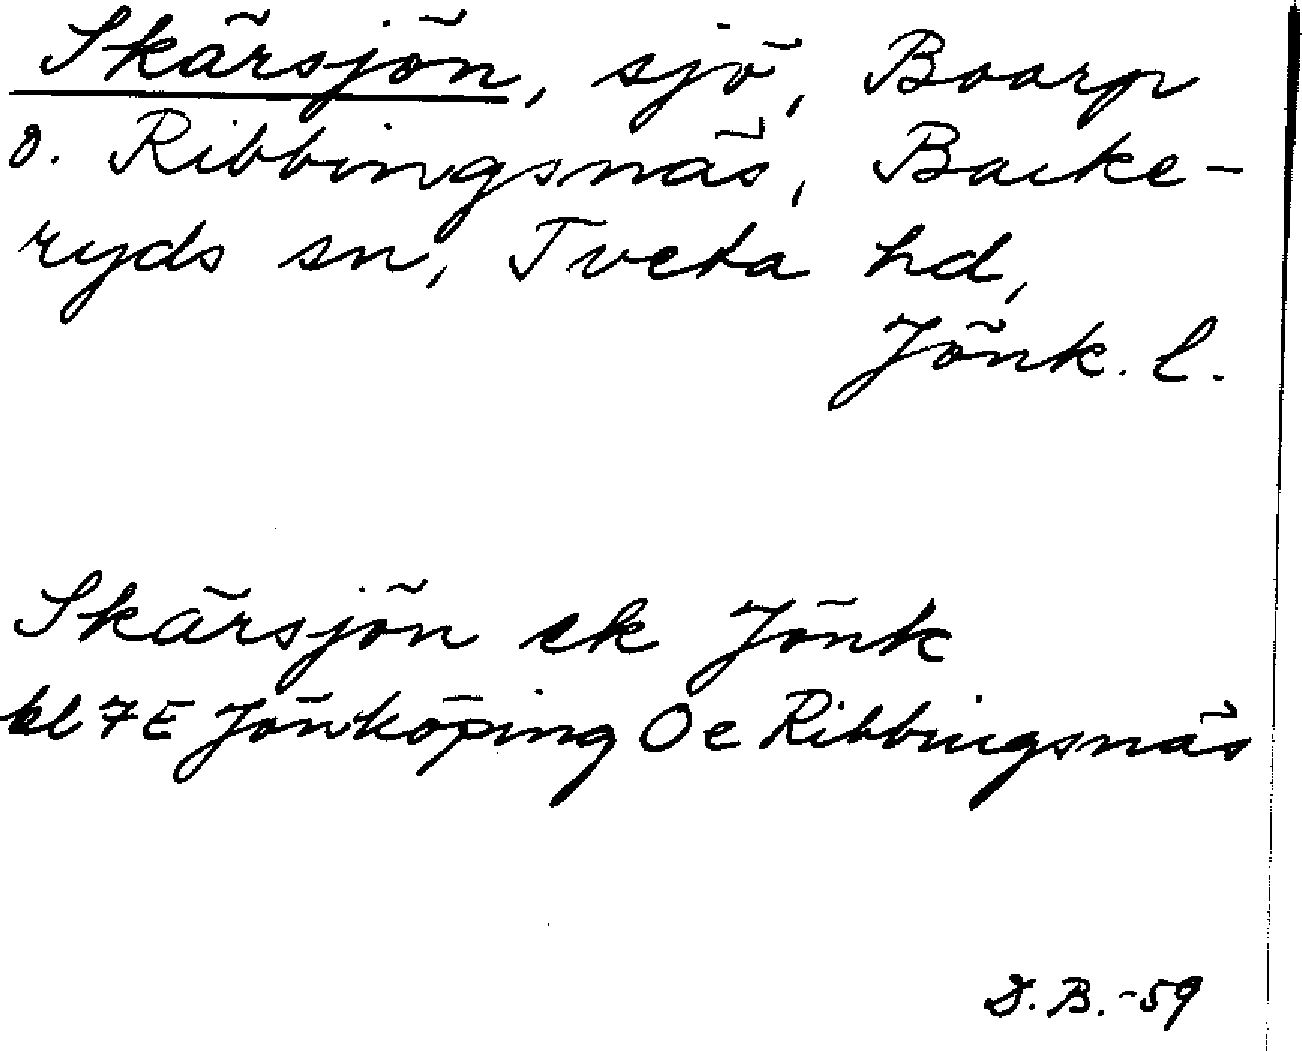 Skärsjön, sjö, Boarp
o. Ribbingsnäs, Backe-
ryds sn, Tveta hd,
Jönk. l.
Skärsjön ek Jönk
bl 7E Jönköping Oe Ribbingsnäs
D.B.-59